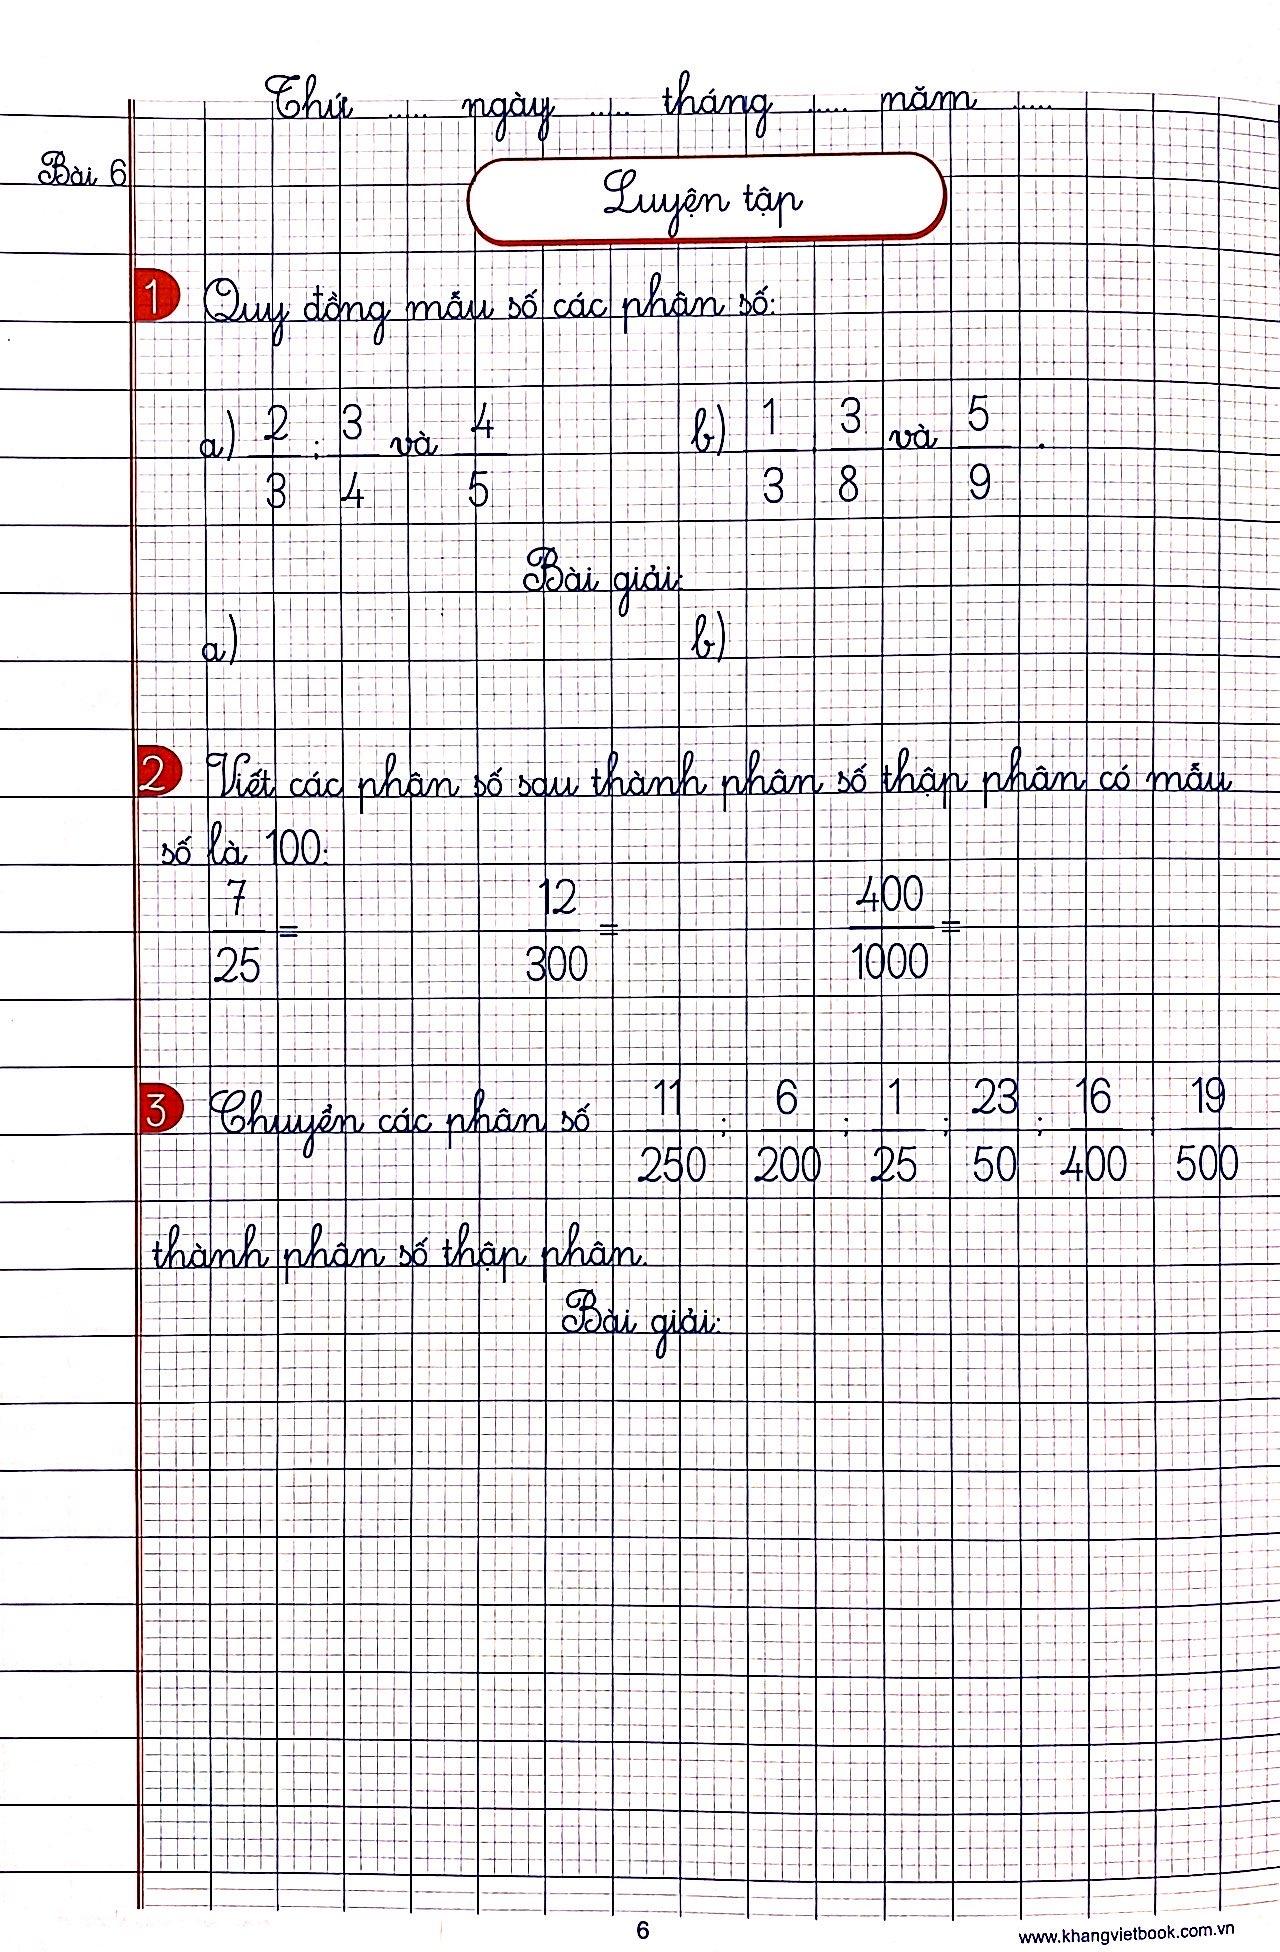 Thứ ..... ngày ..... tháng ..... năm .....
Bài 6
Luyện tập
1 Quy đồng mẫu số các phân số:
a) 2/3 ; 3/4 và 4/5 b) 1/3 ; 3/8 và 5/9 .
Bài giải:
a) b)
2 Viết các phân số sau thành phân số thập phân có mẫu
số là 100:
7/25 = 12/300 = 400/1000 =
3 Chuyển các phân số 11/250 ; 6/200 ; 1/25 ; 23/50 ; 16/400 ; 19/500
thành phân số thập phân.
Bài giải:
6
www.khangvietbook.com.vn